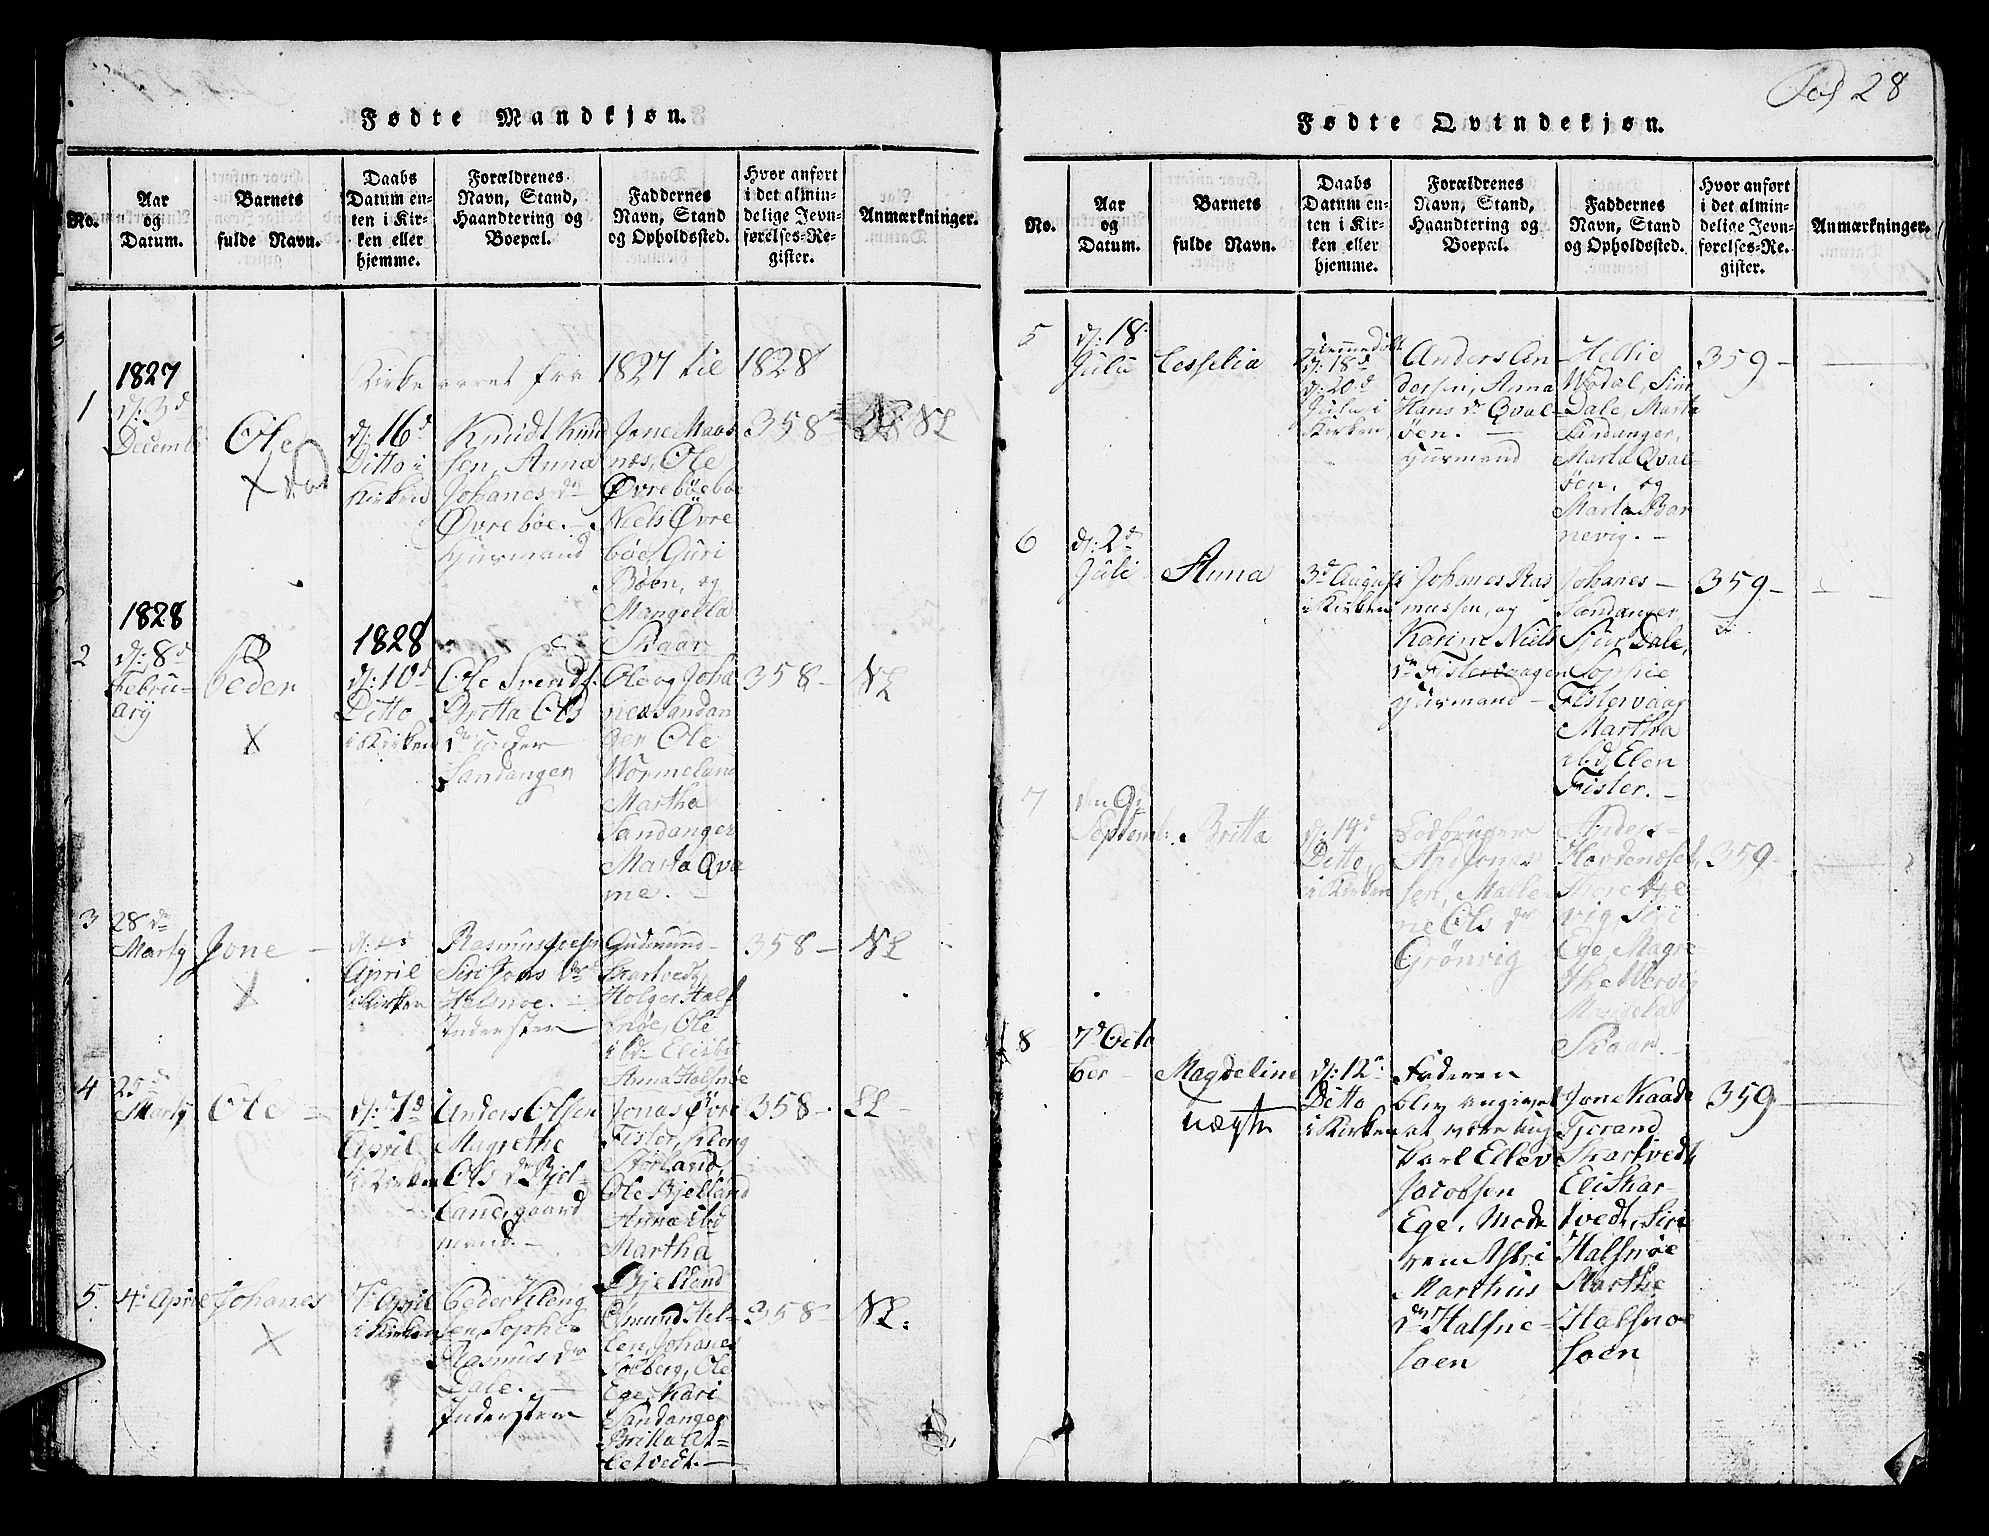 Pag 28
Fødte Mandkjøn.
No.
Aar
og
Datum.
Barnets
fulde Navn.
Daabs
Datum en-
ten i Kir-
ken eller
hjemme.
Forældrenes
Navn, Stand,
Haandtering og
Boepæl.
Faddernes
Navn, Stand
og Opholdssted.
Hvor anført
i det almin-
delige Jevn-
førelses-Re-
gister.
Anmærkninger.
Kirke aaret fra 1827 til 1828
1
1827
d: 3d
Decemb
Ole
X
d: 16d
Ditto i
Kirken
Knudt Knud
sen, Anna
Johanes dr
Øvrebøe. –
Huusmand
Jone Maas
næs, Ole
Øvrebøebøe
Niels Øvre
bøe, Guri
Bøen, og
Mangella
Skaar
358 –
NL
2
1828
d: 8d
Febru-
ary
Peder
X
1828
d: 10d
Ditto
i Kirken
Ole Svends.
Britta Ols
dr under
Sandanger
Ole og Joha
nes Sandan
ger Ole
Wormeland
Martha
Sandanger
Marta Qva
me. –
358 –
NL
3
28de
Marty
Jone –
X
April
i Kirken
Rasmus
Siri Jons dr
Halsnøe. –
Inderster
Gudmund –
Skartvedt,
Holger Hals
nøe, Ole
ibd Elisb:
Anna Halsnøe
358 –
NL
4
25de
Marty
Ole –
d: 7d
April
i Kirken
Anders Olsen
Magrethe
Ols dr Bjel-
land, gaard
mand. –
Jonas Øvre
Fister, Kleng
Storland,
Ole Bjelland
Anna ibd
Martha
Bjelland
358 –
LL –
5.
4d April
Johanes
X
7d April
i Kirken
Peder Kleng
sen, Sophie
Rasmus dr
Dale. –
Inderster
Osmund Hel-
len, Johanes
Solberg, Ole
Ege, Kari
Sandanger
Britta At-
letvedt. –
358 –
NL.
Fødte Qvindekjøn.
No.
Aar
og
Datum.
Barnets
fulde Navn.
Daabs
Datum en-
ten i Kir-
ken eller
hjemme.
Forældrenes
Navn, Stand,
Haandtering og
Boepæl.
Faddernes
Navn, Stand
og Opholdssted.
Hvor anført
i det almin-
delige Jevn-
førelses-Re-
gister.
Anmærkninger.
5
d: 18
Julii
Cesselia
hjemmedøbt
d: 18d
d: 20d
Julii i
Kirken
Anders An
dersen, Anna
Hans dr Qval-
øen. –
Huusmand
Hellie
Wodal, Siri
Dale, Marta
Sandanger,
Marta Qval-
øen, og
Marta Bar
nevig. –
359 –
6
d: 2d
Juli
Anna
3d August
i Kirken
Johanes Ras
mussen, og
Karine Niels
dr Fistervaagen
Huusmand –
Johanes –
Sandanger
Siur Dale,
Sophie
Fistervaag
Martha
ibd, Elen
Fister. –
359 –
7
den 9d
Septemb:
Britta
d: 14d
Ditto
i Kirken
Jodbruger
Aad Jonas
sen, Malle-
ne Ols dr
Grønvig
Anders –
Hovdenæset,
Thore
vig, Siri
Ege Magre
the
Skaar. –
359 –
8
7d Octo
ber –
Magdeline
uægte
d: 12d
Ditto
i Kirken
Faderen
blev angivet
at være Ung
Karl Ellev
Jacobsen
Ege. Mode
ren Astri
Marthus
dr Halsne-
søen
Jone Kaade
Tjerand
Skartvedt
Eli Skar-
tvedt, Siri
Halsnøe
Marthe
Halsnøe
søen
359 –